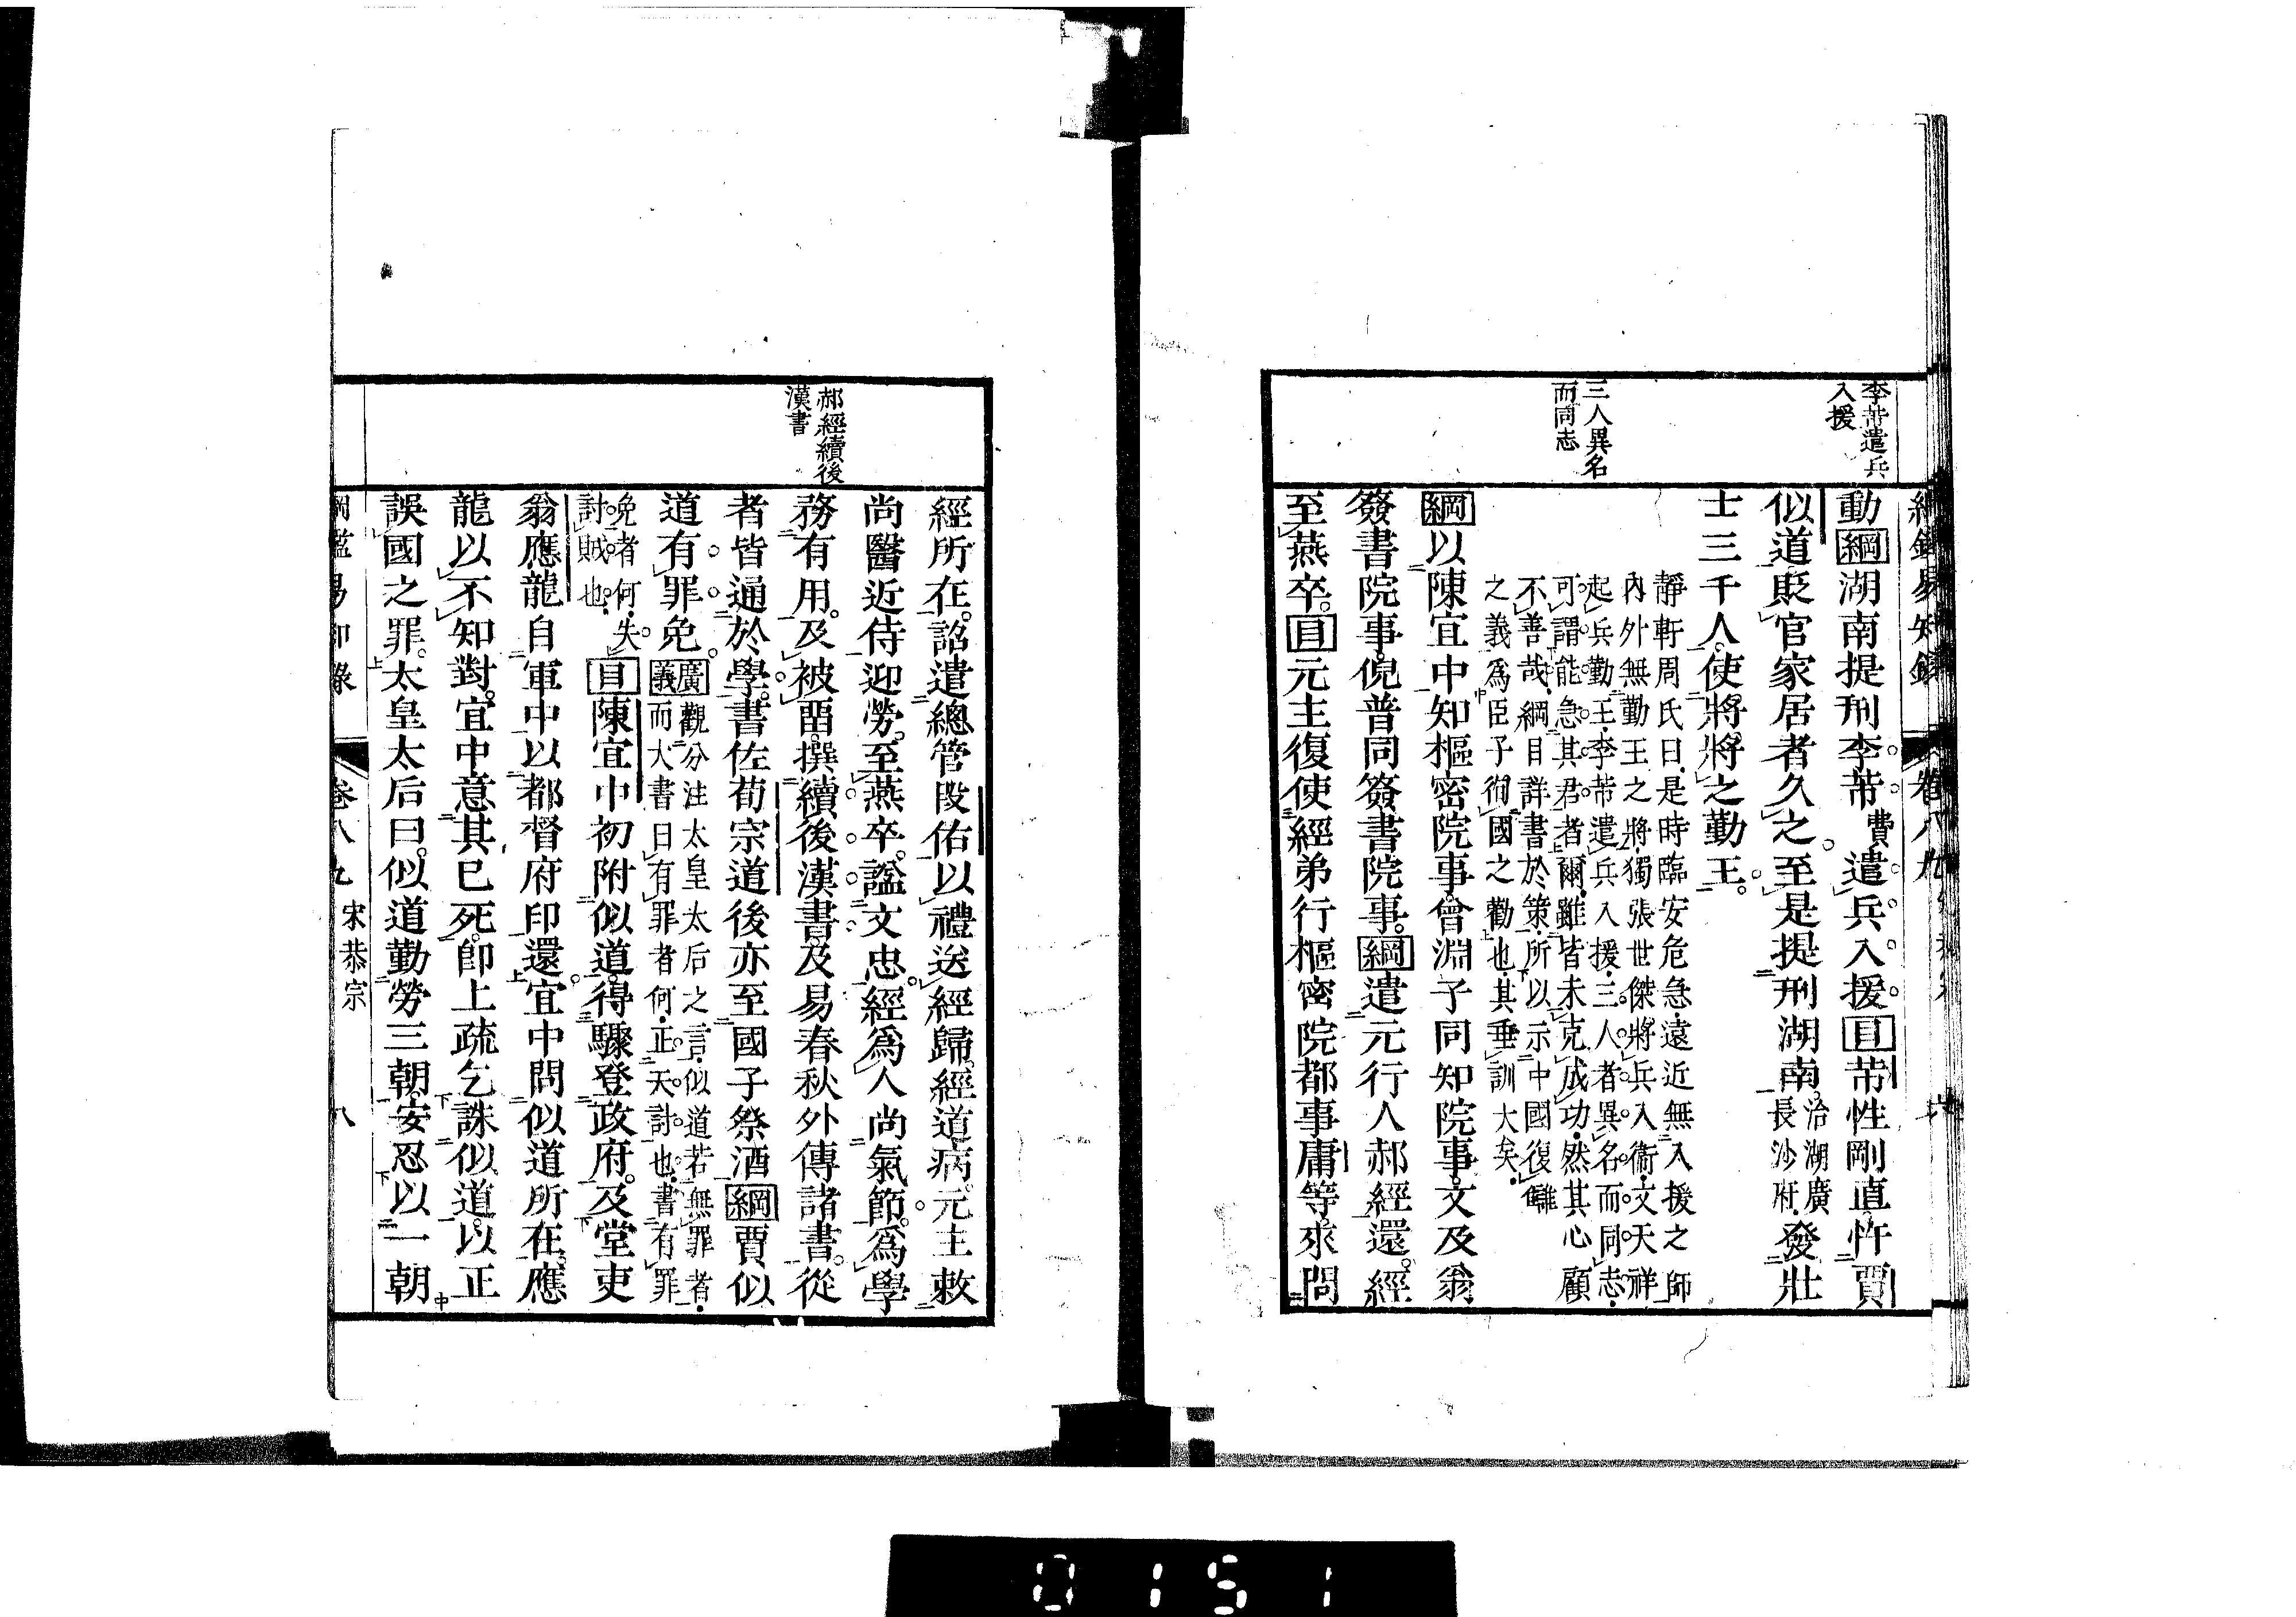 李芾遣兵
入援
三人異名
而同志
動綱湖南提刑李芾費遣兵入援目芾性剛直忤賈
似道貶官家居者久之至是提刑湖南治湖廣長沙府發壯
士三千人使將將之勤王
靜軒周氏曰是時臨安危急遠近無入援之師
內外無勤王之將獨張世傑將兵入衞文天祥
起兵勤王李芾遣兵入援三人者異名而同志
可謂能急其君者爾雖皆未克成功然其心顧
不善哉綱目詳書於策所以示中國復讎
之義爲臣子徇國之勸也其垂訓大矣
綱以陳宜中知樞密院事曾淵子同知院事文及翁
簽書院事倪普同簽書院事綱遣元行人郝經還經
至燕卒目元主復使經弟行樞密院都事庸等來問
郝經續後
漢書
經所在詔遣總管段佑以禮送經歸經道病元主敕
尚醫近侍迎勞至燕卒諡文忠經爲人尚氣節爲學
務有用及被畱撰續後漢書及易春秋外傳諸書從
者皆通於學書佐荀宗道後亦至國子祭酒綱賈似
道有罪免廣義觀分注太皇太后之言似道若無罪者
而大書曰有罪者何正天討也書有罪
免者何失
討賊也目陳宜中初附似道得驟登政府及堂吏
翁應龍自軍中以都督府印還宜中問似道所在應
龍以不知對宜中意其已死卽上疏乞誅似道以正
誤國之罪太皇太后曰似道勤勞三朝安忍以一朝
綱鑑易知錄 卷八九 宋恭宗 八
0151